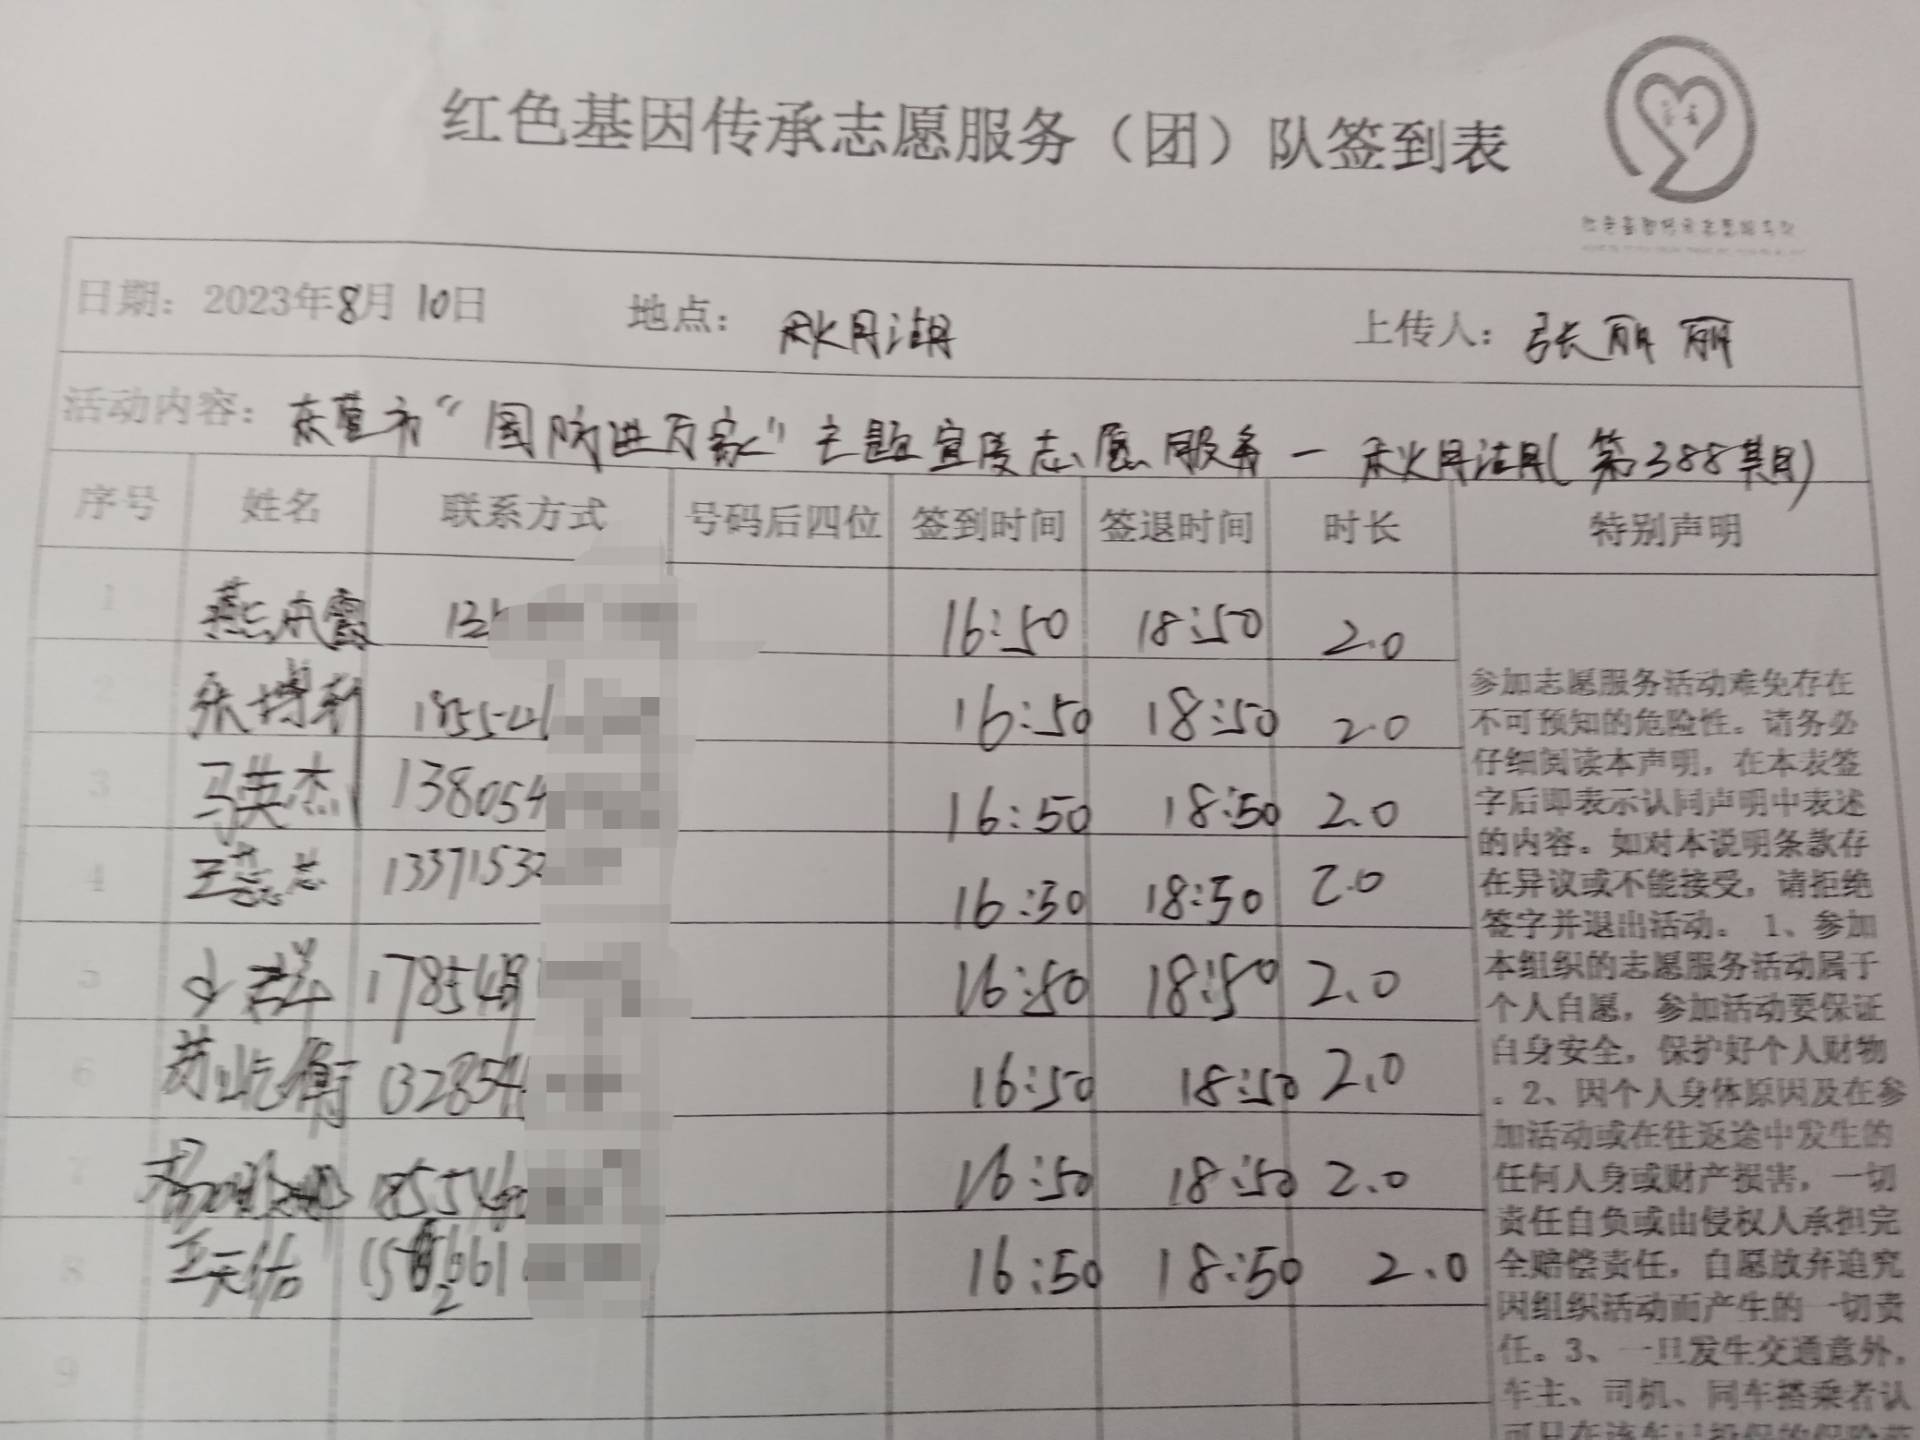 红色基因传承志愿服务（团）队签到表
日期：2023年8月10日 地点：秋月湖 上传人：张丽丽
活动内容：东营市“国防进万家”主题宣传志愿服务－秋月湖(第388期)
序号 姓名 联系方式 号码后四位 签到时间 签退时间 时长 特别声明
1 燕本霞 13 16:50 18:50 2.0
2 张博轩 185546 16:50 18:50 2.0
3 马英杰 138054 16:50 18:50 2.0
4 王蕊芯 1337153 16:50 18:50 2.0
5 178549 16:50 18:50 2.0
6 132854 16:50 18:50 2.0
7 185546 16:50 18:50 2.0
8 王天佑 16:50 18:50 2.0
9
参加志愿服务活动难免存在
不可预知的危险性。请务必
仔细阅读本声明，在本表签
字后即表示认同声明中表述
的内容。如对本说明条款存
在异议或不能接受，请拒绝
签字并退出活动。 1、参加
本组织的志愿服务活动属于
个人自愿，参加活动要保证
自身安全，保护好个人财物
。2、因个人身体原因及在参
加活动或在往返途中发生的
任何人身或财产损害，一切
责任自负或由侵权人承担完
全赔偿责任，自愿放弃追究
因组织活动而产生的一切责
任。3、一旦发生交通意外，
车主、司机、同车搭乘者认